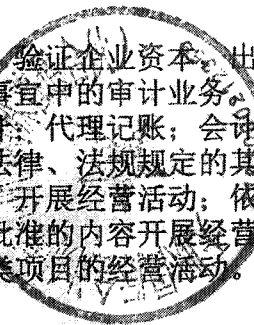 验证企业资本，出
事宜中的审计业务，
代理记账；会计
法律、法规规定的其
开展经营活动；依
批准的内容开展经营
类项目的经营活动。